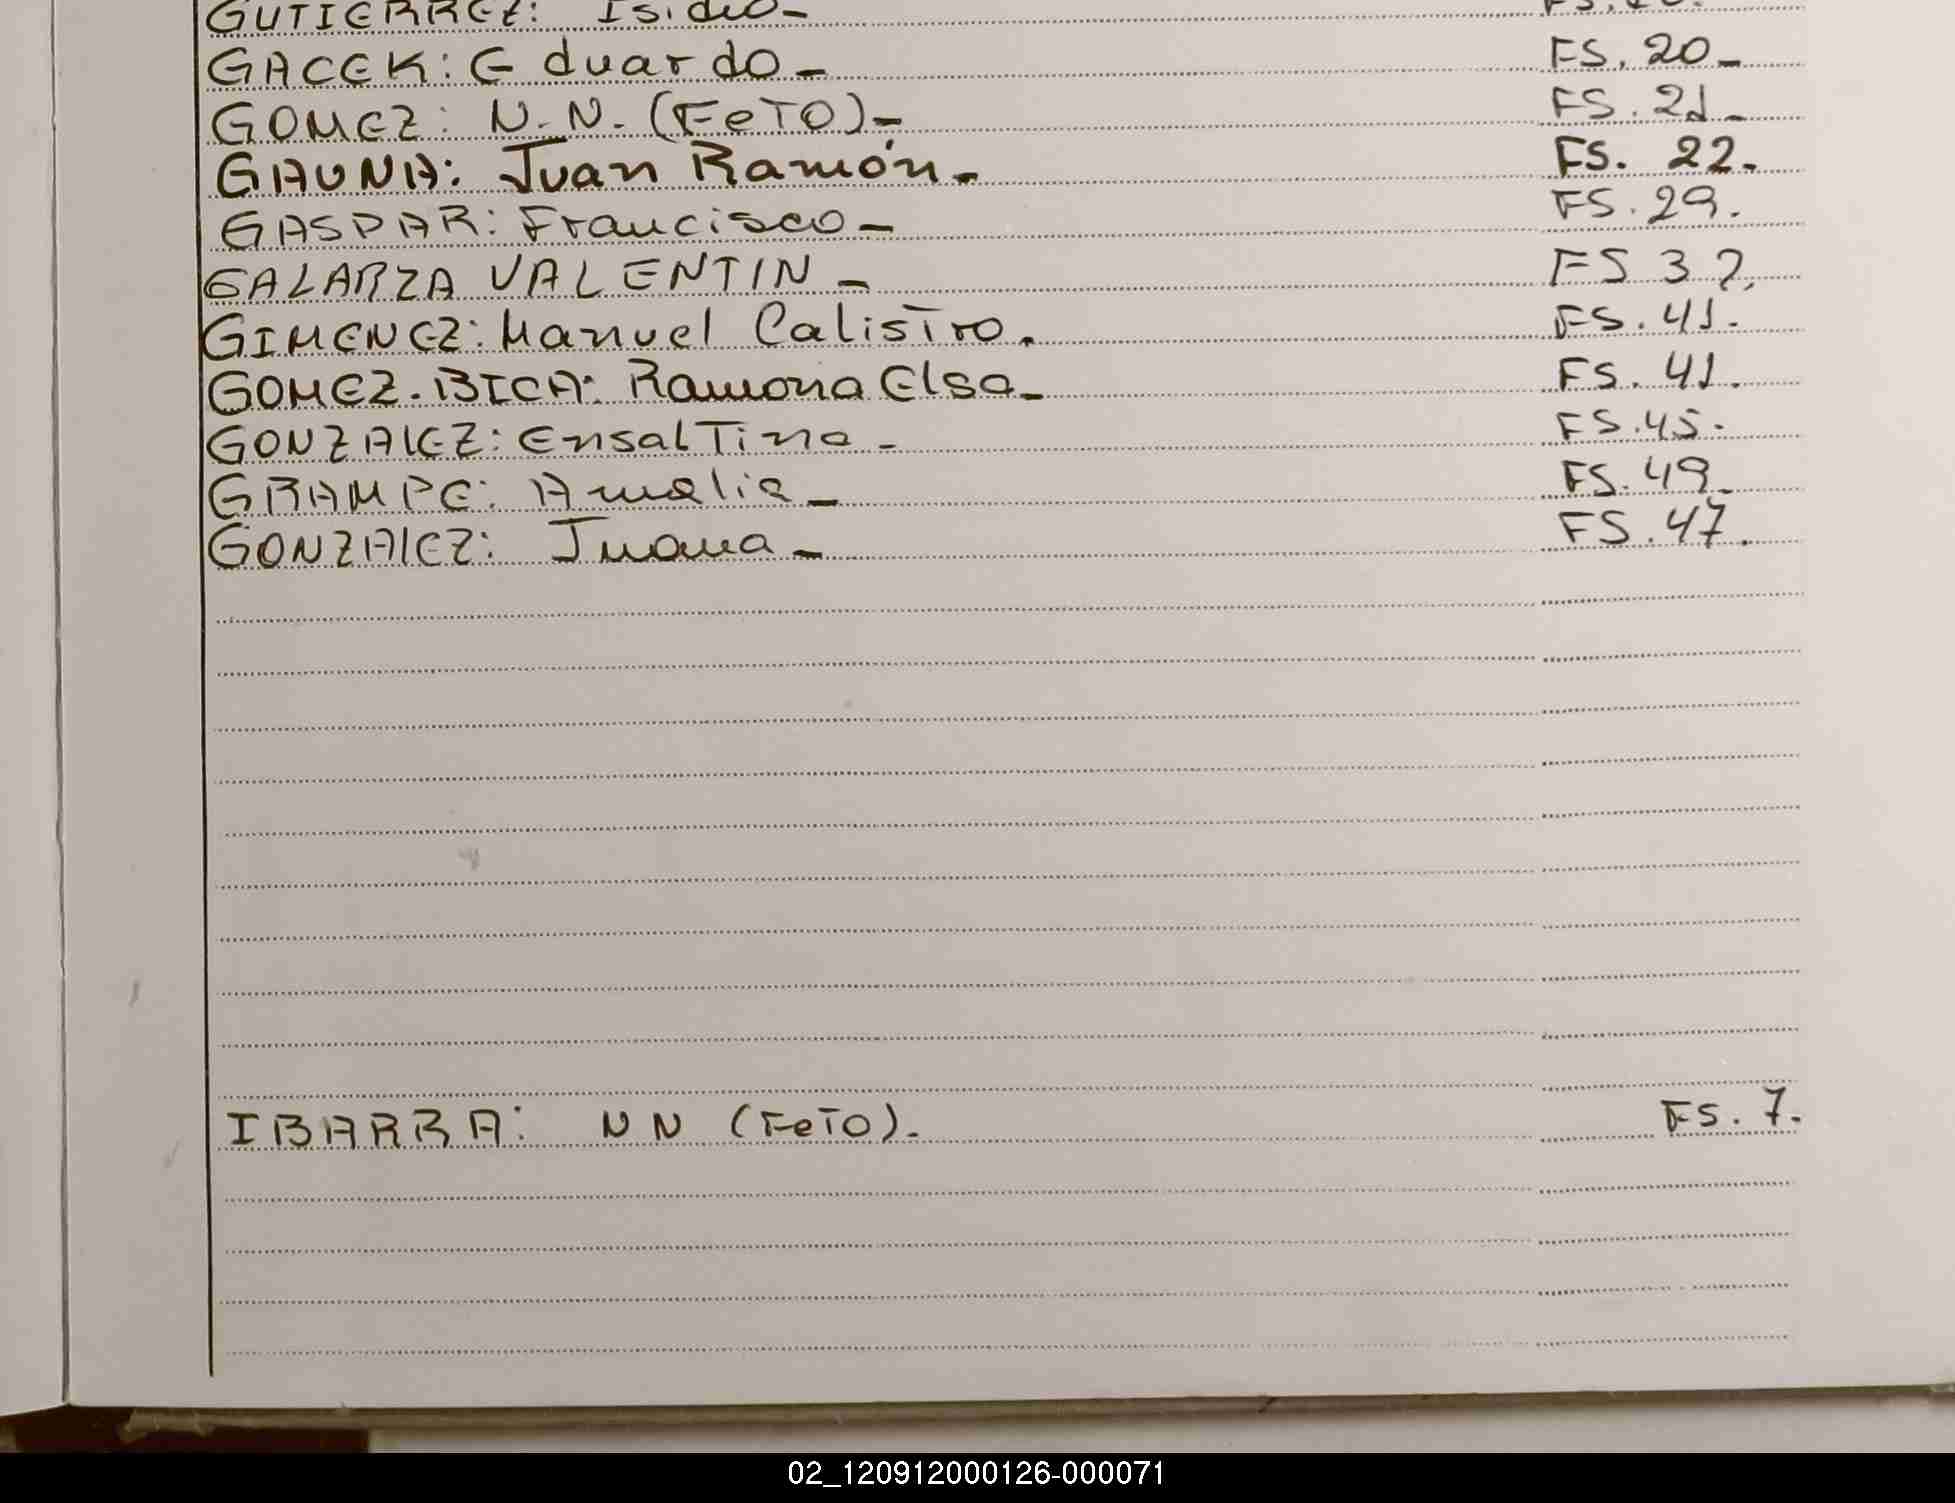 GUTIERREZ: Isidro-
GACEK: Eduardo- FS. 20-
GOMEZ: N.N. (FeTO)- FS. 21-
GAUNA: Juan Ramón- FS. 22.
GASPAR: Francisco- FS. 29.
GALARZA VALENTIN- FS 32.
GIMENEZ: Manuel Calistro. FS. 41.
GOMEZ.BICA: Ramona Elsa- FS. 41.
GONZALEZ: Ensaltina- FS. 45.
GRAMPE: Amalia- FS. 49-
GONZALEZ: Juana- FS. 47.
IBARRA: NN (FeTO). FS. 7.
02_120912000126-000071